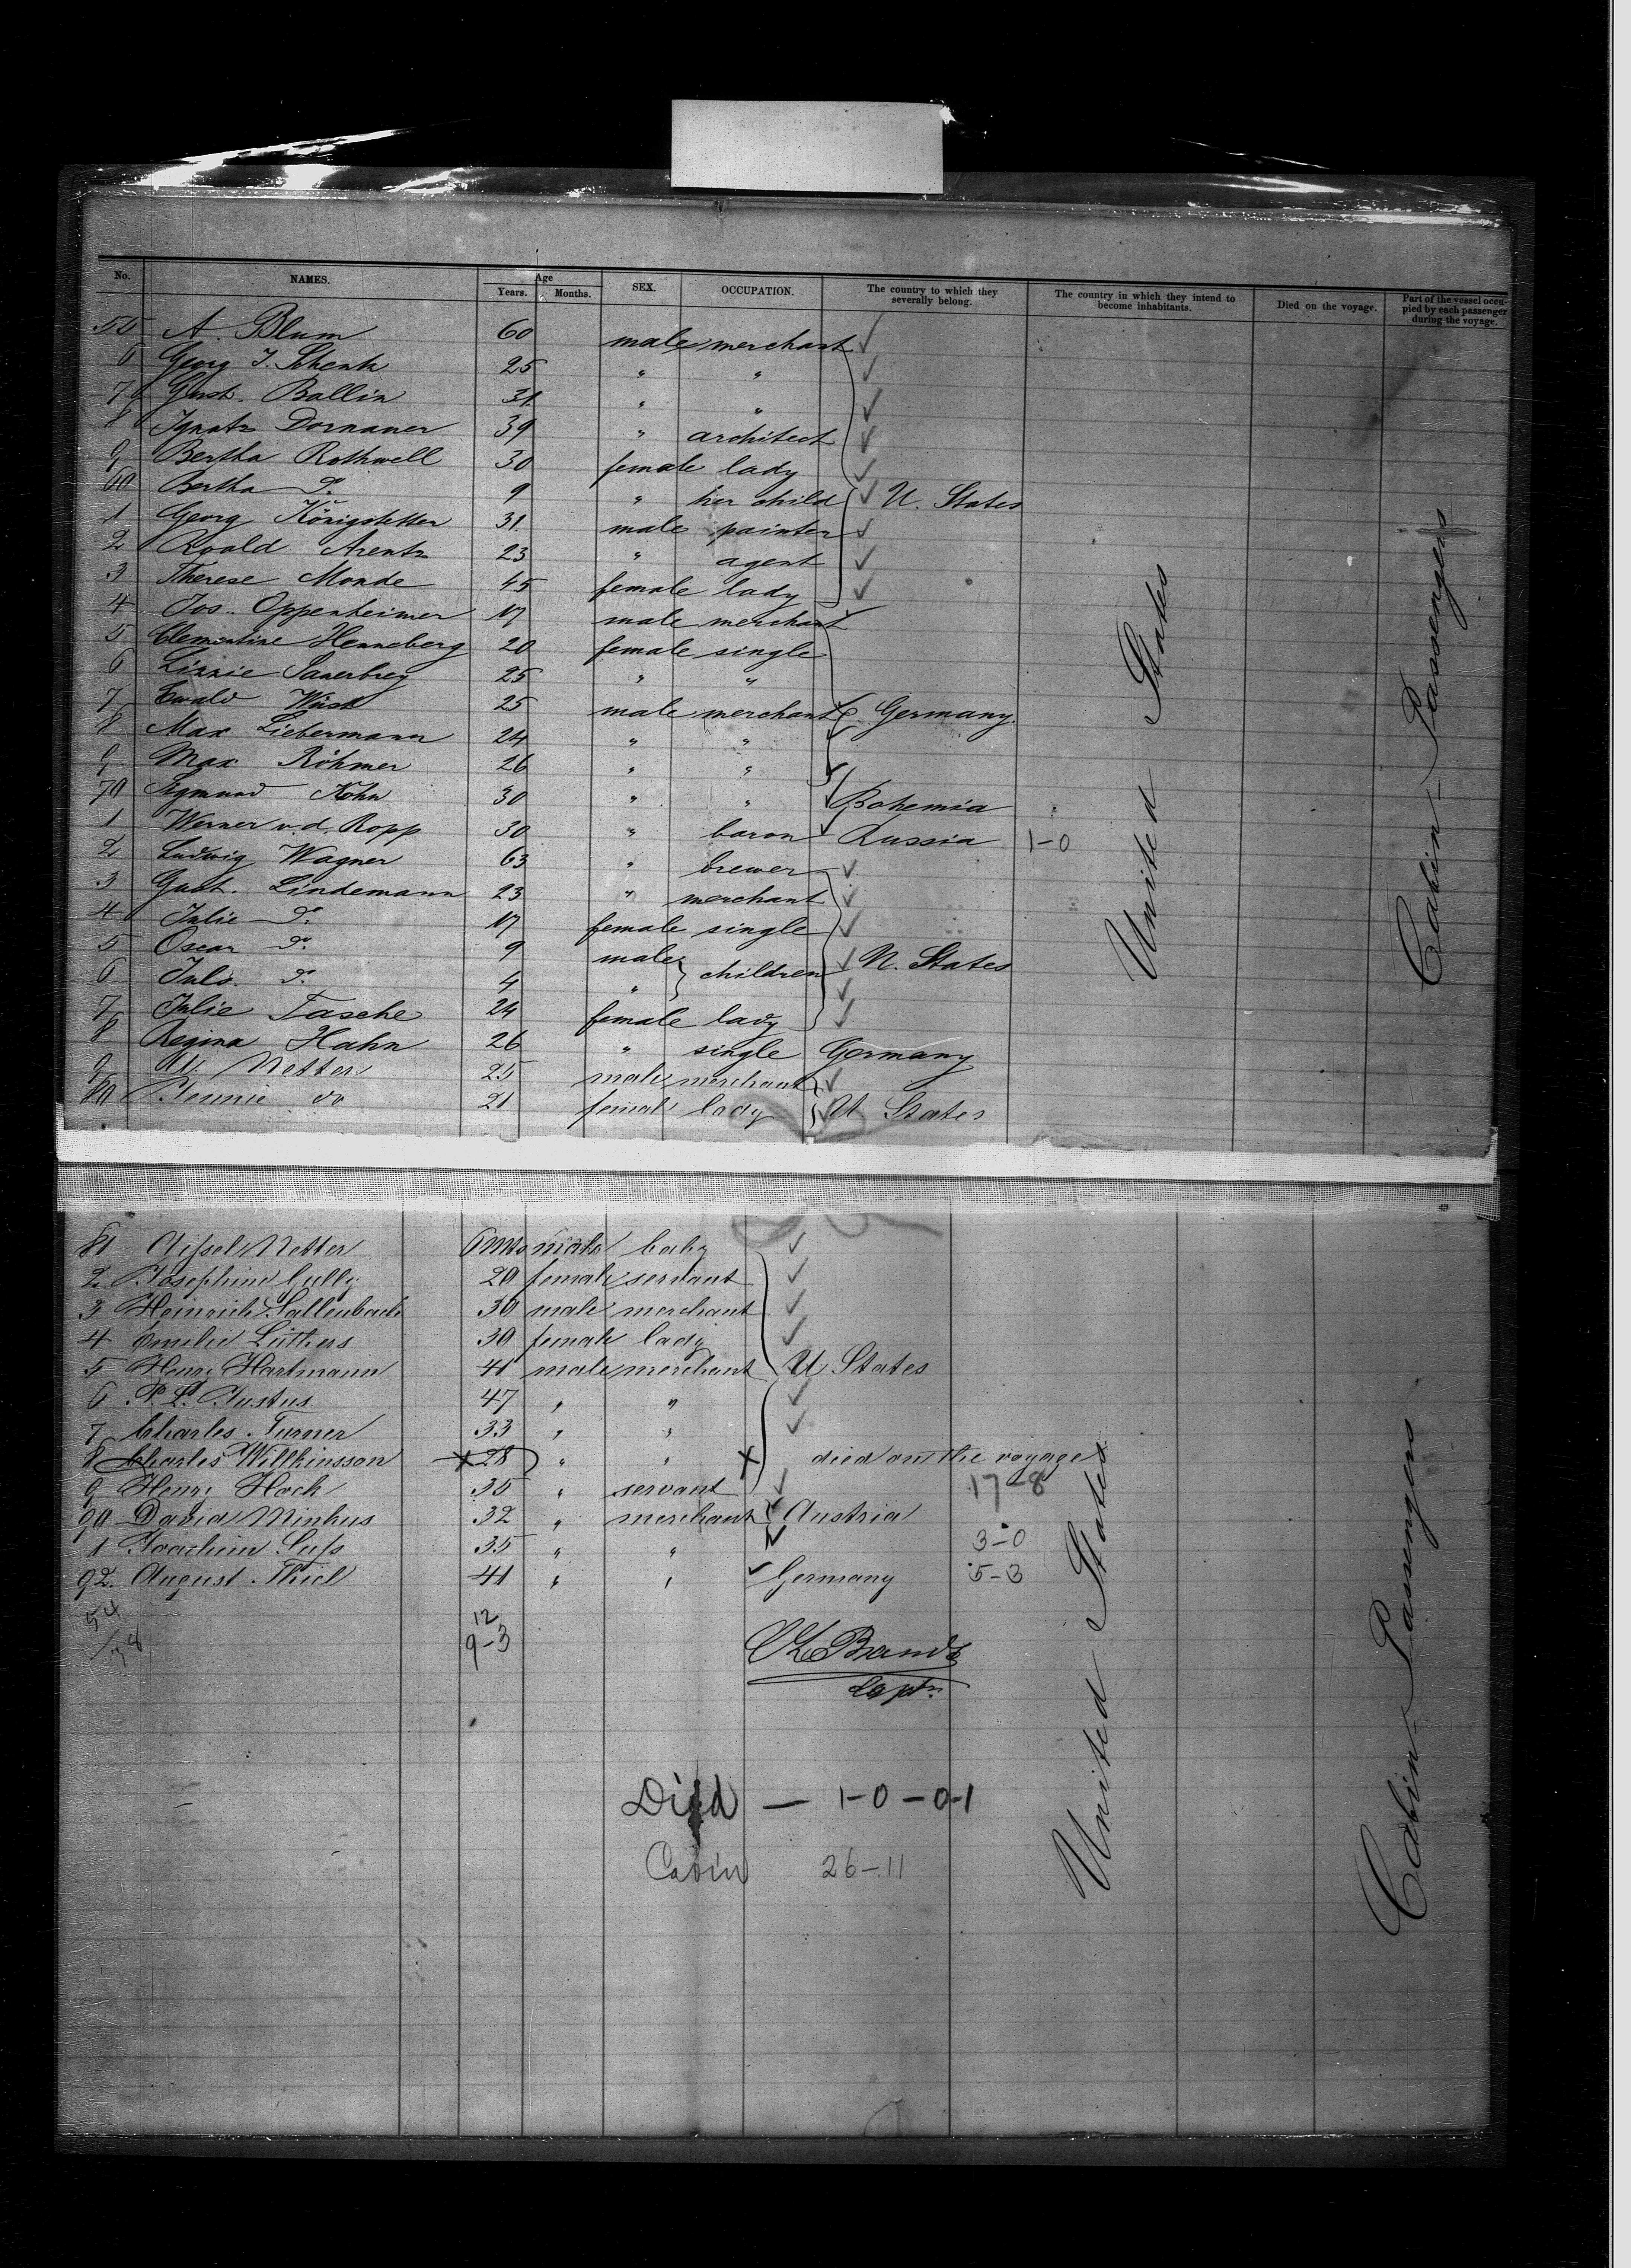 No. NAMES. Age Years. Months. SEX. OCCUPATION. The country to which they severally belong. The country in which they intend to become inhabitants. Died on the voyage. Part of the vessel occupied by each passenger during the voyage.
55 A. Blum 60 male merchant
6 Georg J. Schenk 25 " "
7 Gust. Ballin 31 " "
8 Ignatz Dornauer 39 " architect
9 Bertha Rothwell 30 female lady
60 Bertha do. 9 " her child U. States
1 Georg Königstetter 31 male painter
2 Roald Arentz 23 " agent
3 Therese Monde 45 female lady
4 Jos. Oppenheimer 17 male merchant
5 Clementine Henneberg 20 female single
6 Lizzie Sauerbrey 25 " "
7 Ewald Wüsk 25 male merchant Germany
8 Max Liebermann 24 " "
9 Max Röhmer 26 " "
70 Sigmund Kohn 30 " " Bohemia
1 Werner v. d. Ropp 30 " baron Russia 1-0
2 Ludwig Wagner 63 " brewer
3 Gust. Lindemann 23 " merchant
4 Julie do. 17 female single
5 Oscar do. 9 male children U. States
6 Juls. do. 4 "
7 Julie Tasche 24 female lady
8 Regina Hahn 26 " single Germany
9 Netter 25 male merchant
80 Jennie do 21 female lady U States
United States
Cabin-Passengers
81 Netter 6 mos male baby
2 Josephine Gully 20 female servant
3 Heinrich Sallenbach 30 male merchant
4 Emilie Lüthers 30 female lady
5 Henry Hartmann 41 male merchant U States
6 P. L. Justus 47 " "
7 Charles Turner 33 " "
8 Charles Willkinsson 28 " " died on the voyage
9 Henry Hock 35 " servant 17-8
90 David Minkus 32 " merchant Austria
1 Joachim Suß 35 " " 3-0
92. August Thiel 41 " " Germany 5-3
54
/38
12
9-3
Brandt
Captn.
Died — 1-0-0-1
Cabin 26-11
United States
Cabin-Passengers